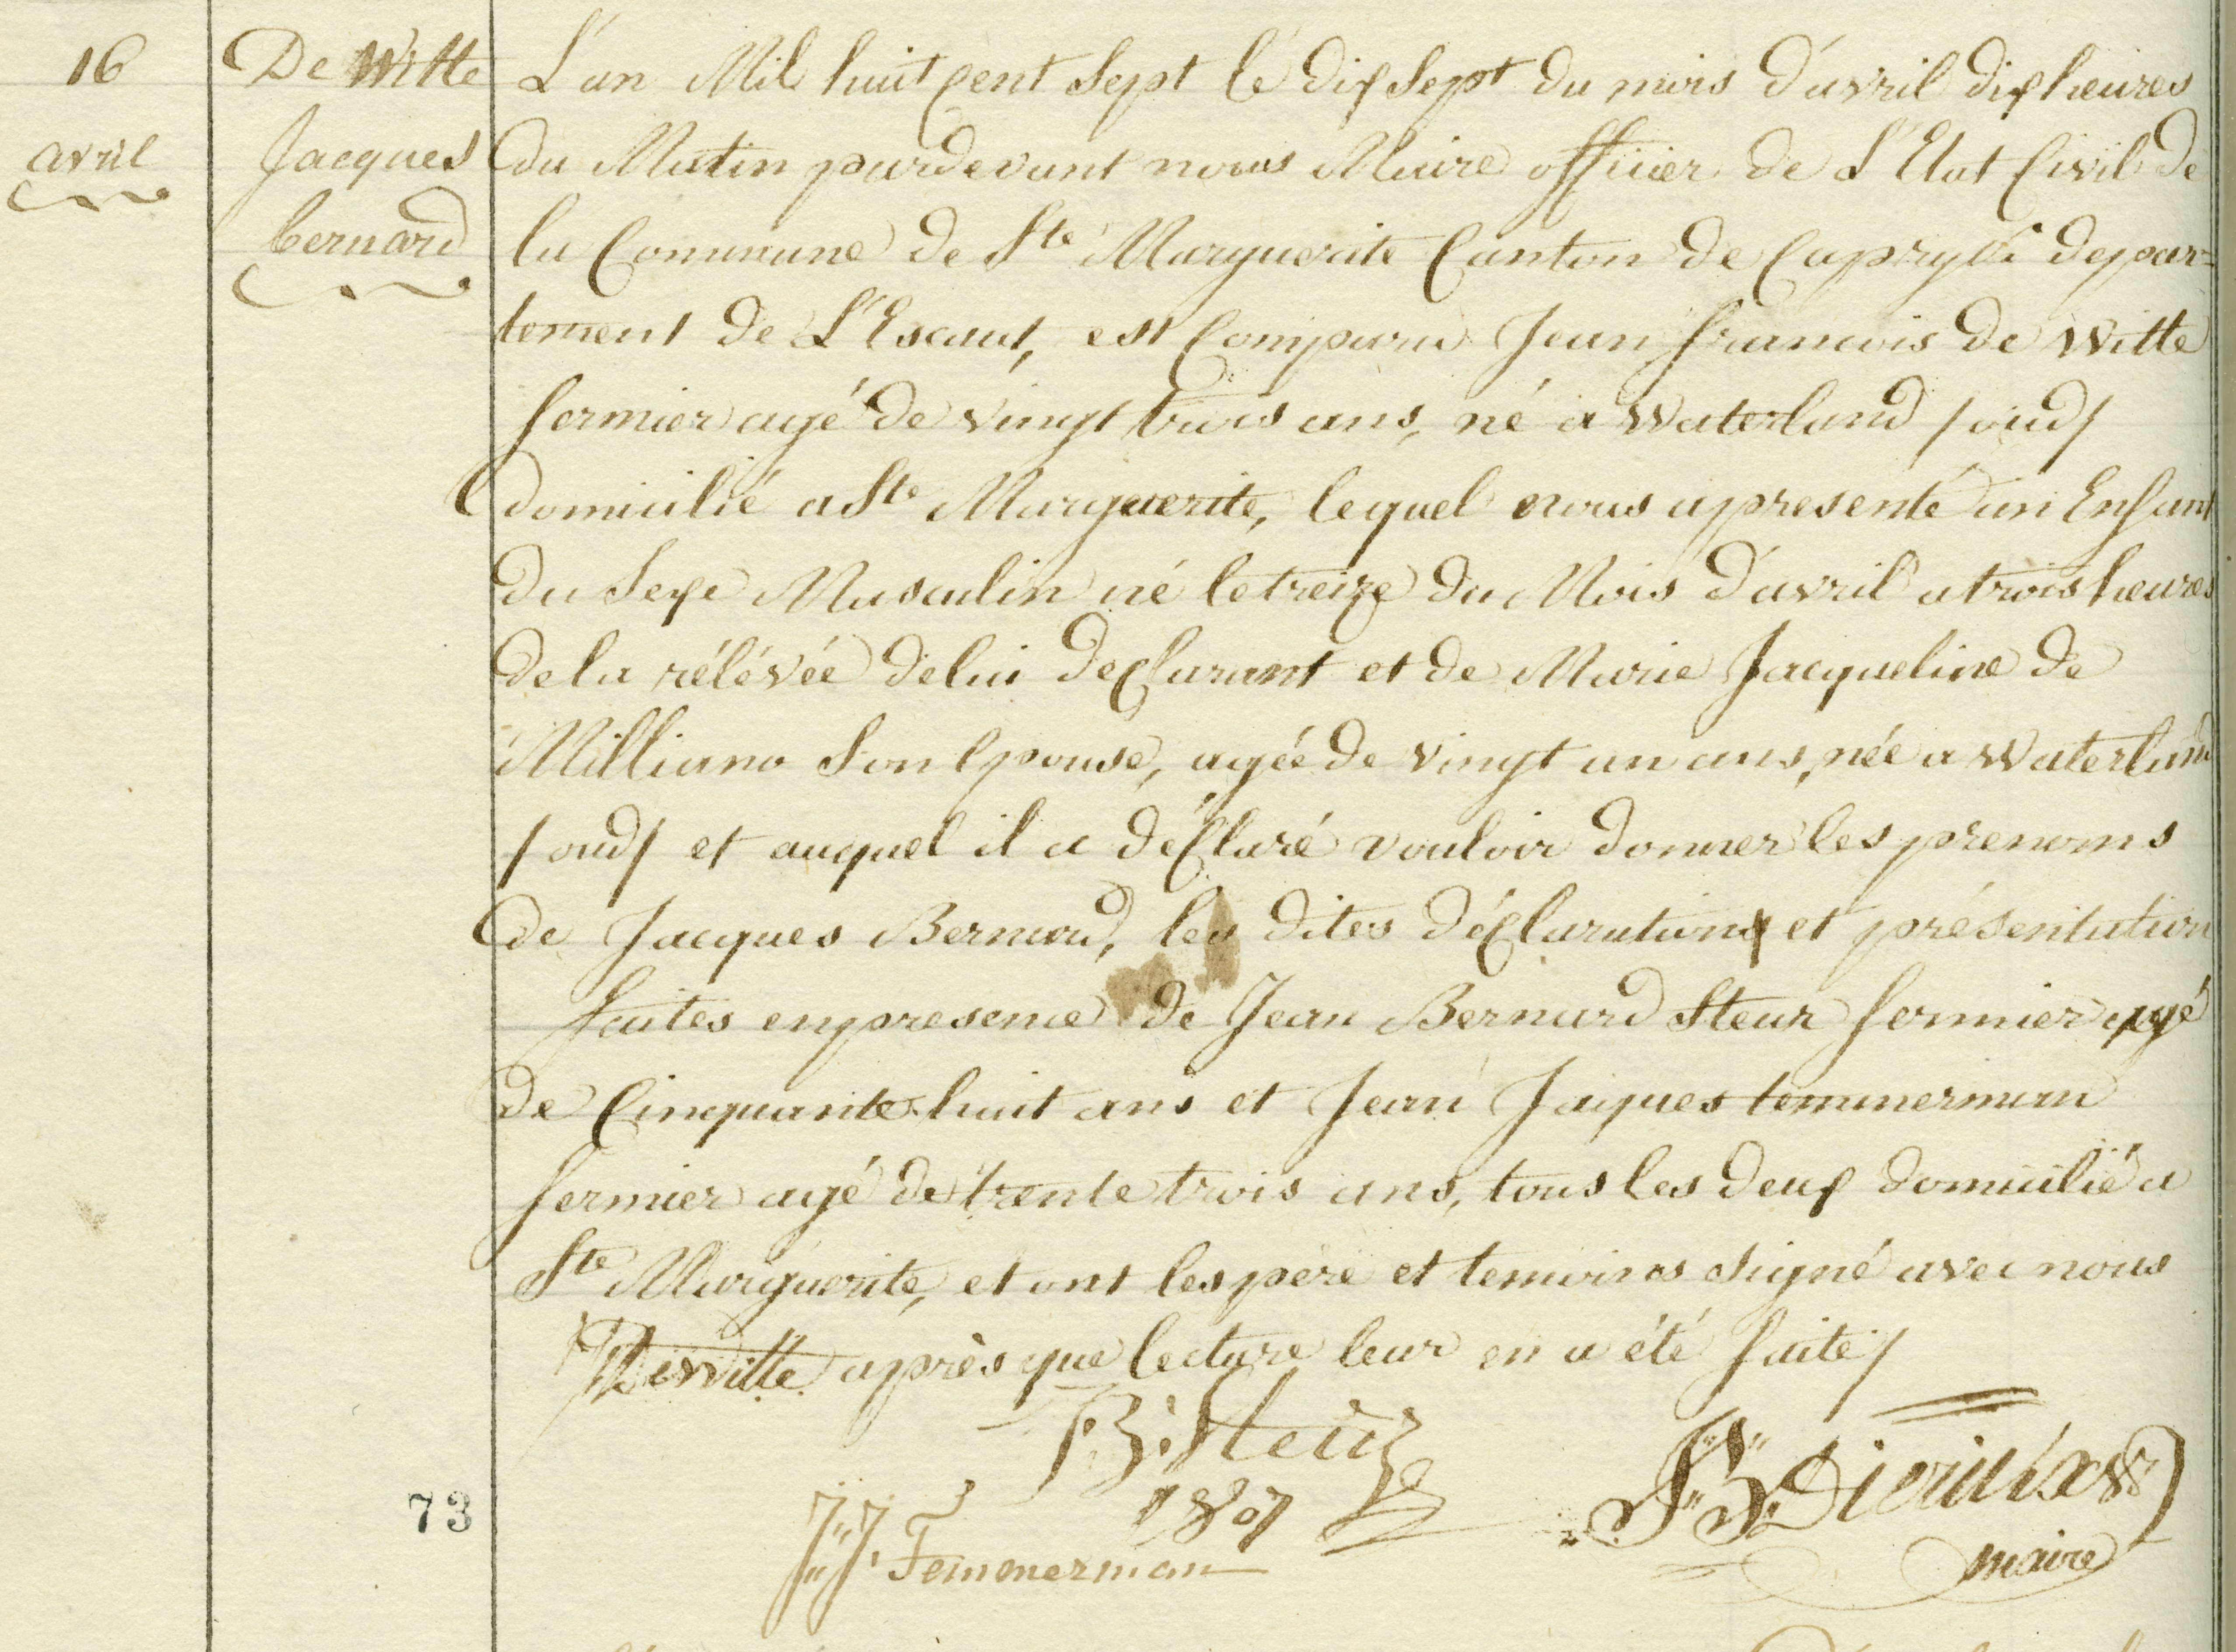 16
avril
De Witte
Jacques
bernard
L'an Mil huit Cent Sept le dix Sept du mois d'avril dix heures
du Matin pardevant nous Maire officier de L'Etat Civil de
la Commune de Ste Marguerite Canton de Caprycke depar-
tement de L'Escaut, est Comparu Jean francois De Witte
fermier agé de vingt trois ans, né a Waterland /oud/
domicilié a Ste Marguerite, lequel nous a presenté un Enfant
du Sexe Masculin né le treize du Mois d'avril a trois heures
de la rélévée de lui declarant et de Marie Jacqueline De
Milliano Son Epouse, agée de vingt un ans, née a Waterland
/oud/ et auquel il a déClaré vouloir donner les prenoms
de Jacques Bernard, les dites déClarations et présentation
faites en presence de Jean Bernard Steur fermier agé
de Cinquante huit ans et Jean Jacques temmerman
fermier agé de trente trois ans, tous les deux domicilié a
Ste Marguerite, et ont les père et temoins signé avec nous
Dewitte après que lecture leur en a été faite/
J: B: Steur
1807
J:J: Temmerman
maire
73